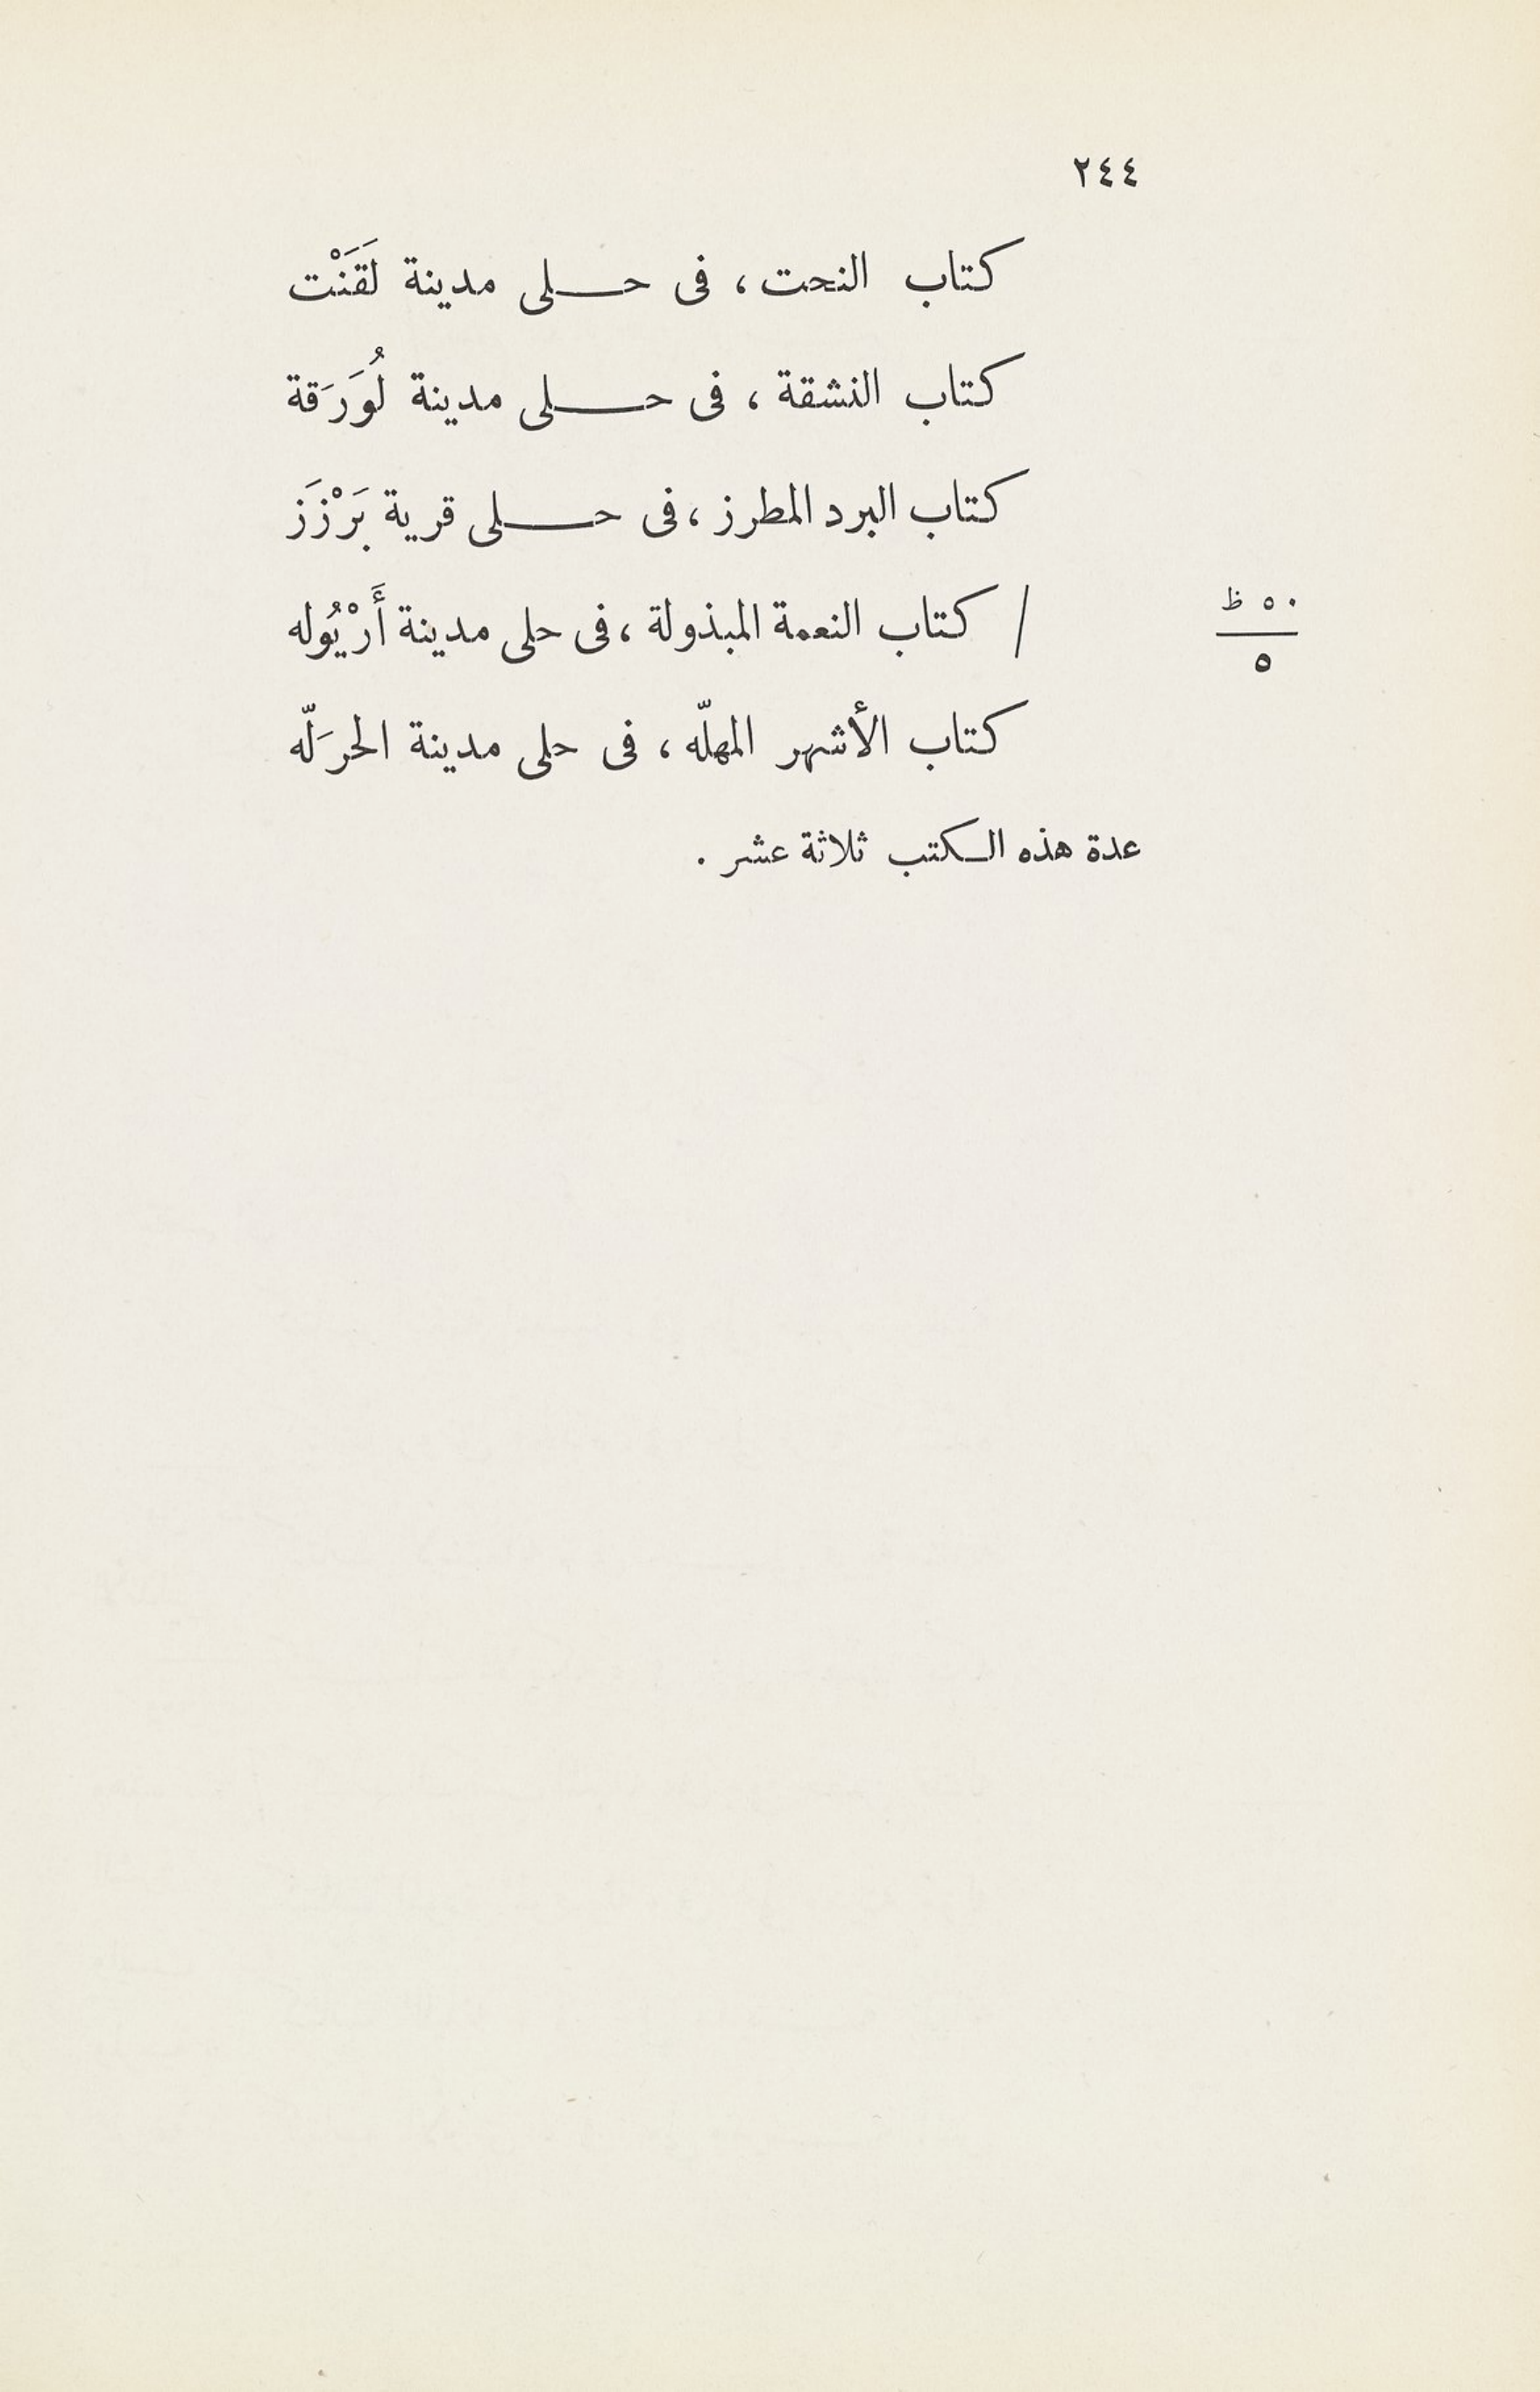 ٢٤٤
كتاب النحت ، فى حلى مدينة لَقَنْت
كتاب النشقة ، فى حلى مدينة لُورَقة
كتاب البرد المطرز ، فى حلى قرية بَرْزَز
٥٠ ظ
/ كتاب النعمة المبذولة ، فى حلى مدينة أَرْيُوله
٥
كتاب الأشهر المهلّه ، فى حلى مدينة الحرَلّه
عدة هذه الكتب ثلاثة عشر .